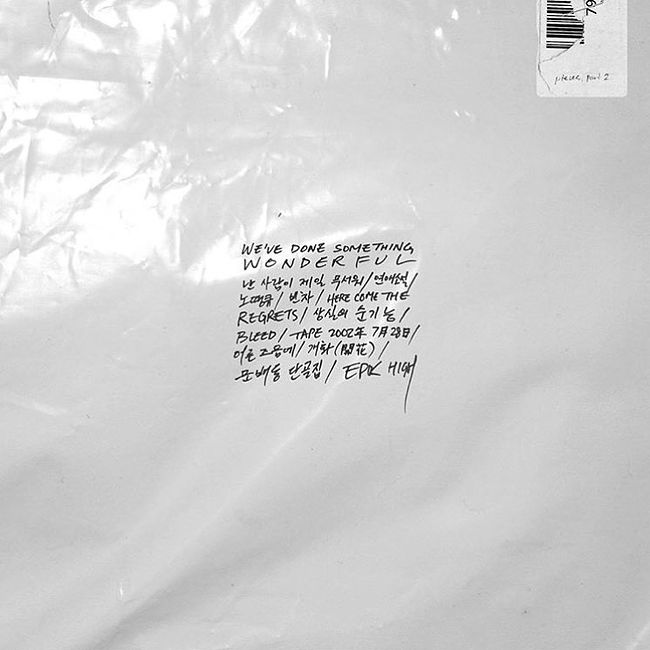 79
WE'VE DONE SOMETHING
WONDERFUL
난 사람이 제일 무서워/연애소설/
노땡큐/빈차/HERE COME THE
REGRETS/상실의 순기능/
BLEED/TAPE 2002年 7月28日/
어른 즈음에/개화(開花)/
문배동 단골집/EPIK HIGH